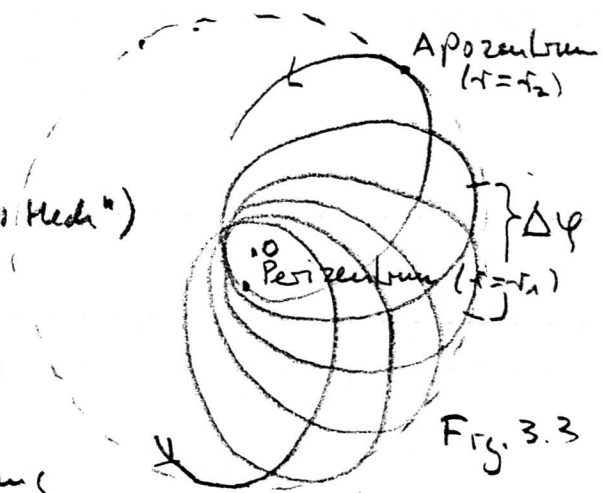 Apozentrum
(r=r₂)
Δφ
O
Perizentrum (r=r₁)
Fig. 3.3